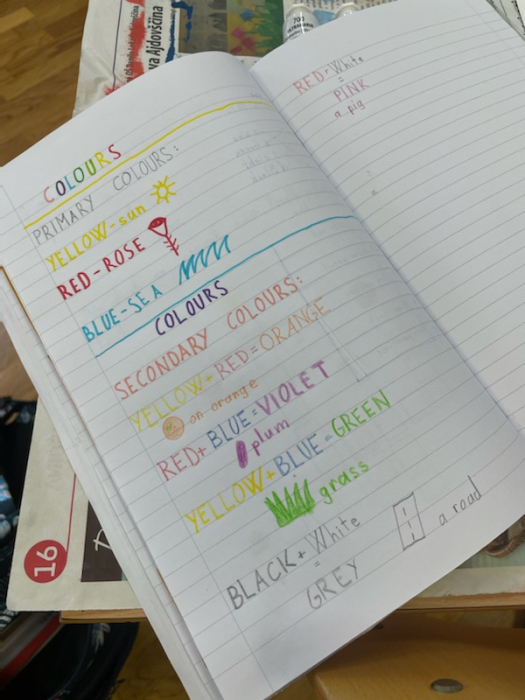 COLOURS
PRIMARY COLOURS:
YELLOW-sun
RED-ROSE
BLUE-SEA
COLOURS
SECONDARY COLOURS:
YELLOW+RED=ORANGE
an orange
RED+BLUE=VIOLET
plum
YELLOW+BLUE=GREEN
grass
BLACK+White
=
GREY
a road
RED+White
=
PINK
a pig
va Ajdovščina
16
700